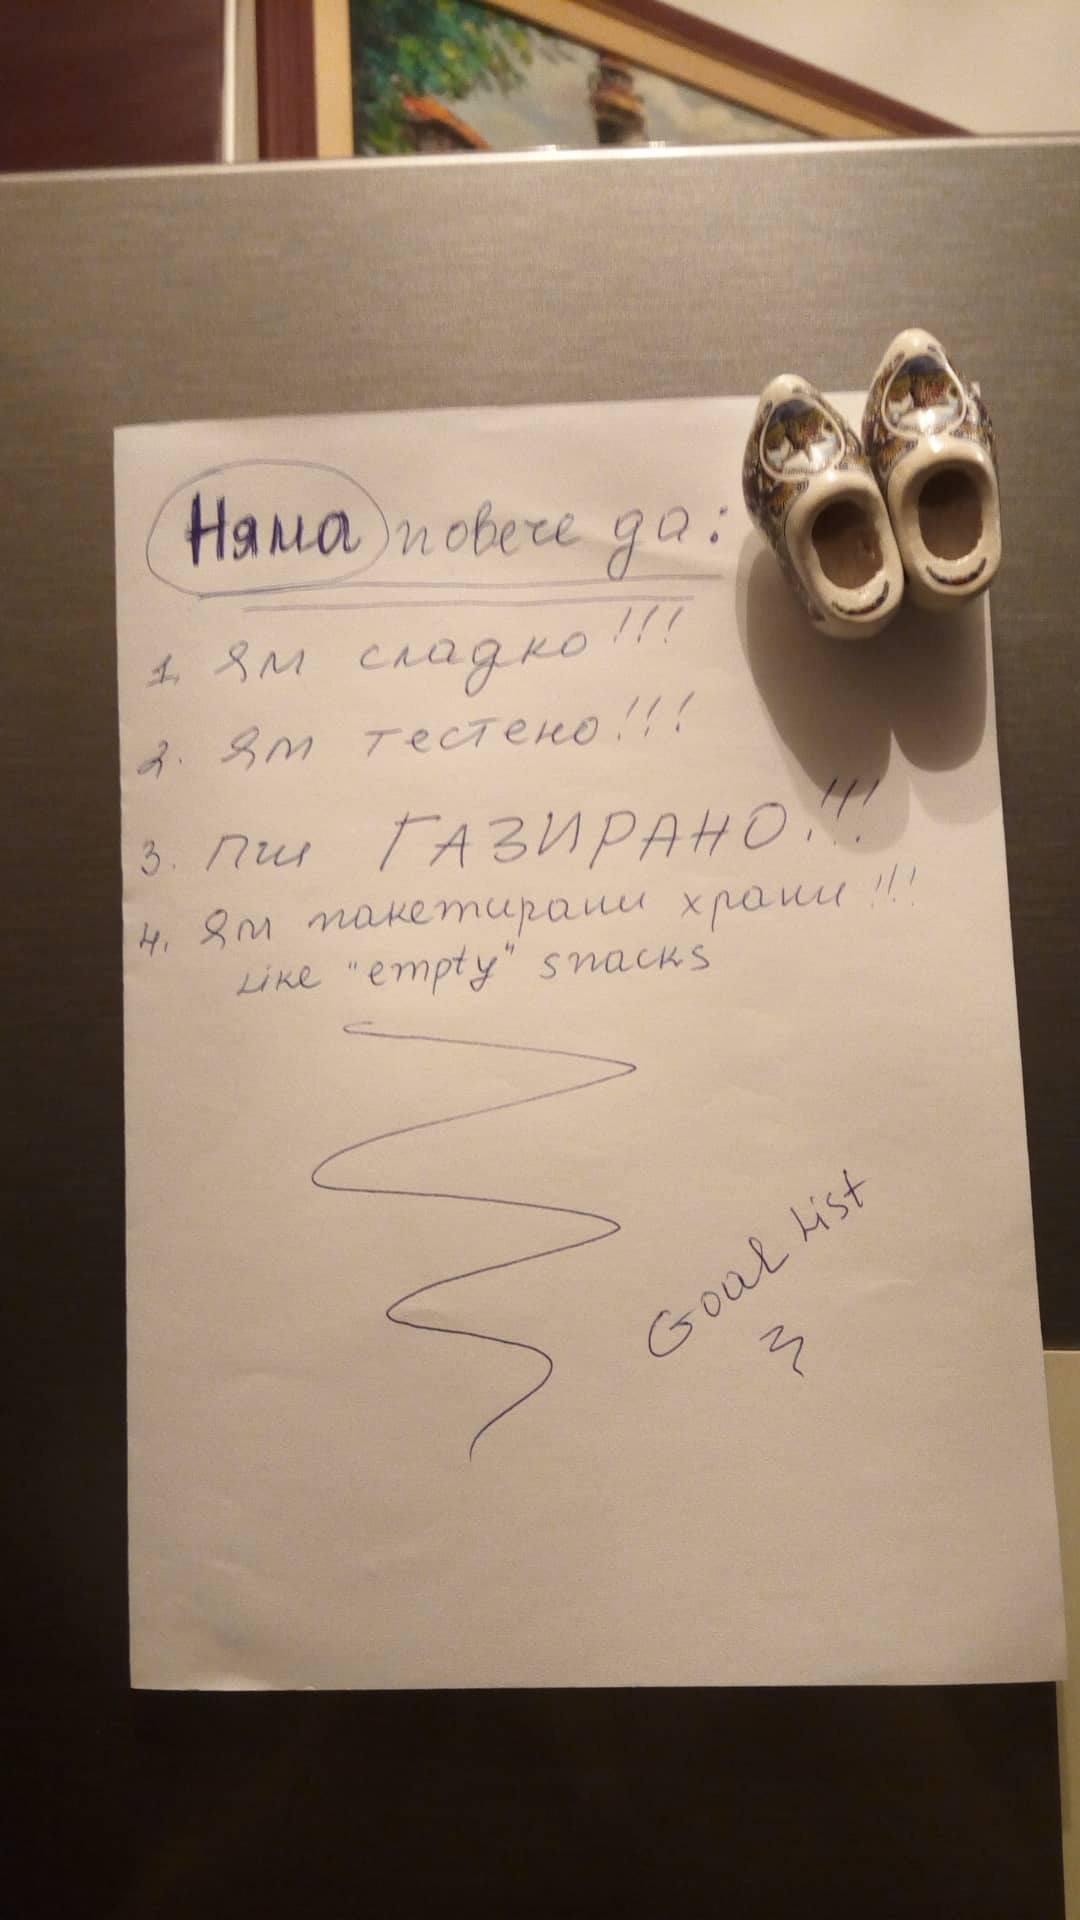 Няма повече да:
1. Ям сладко!!!
2. Ям тестено!!!
3. Пия ГАЗИРАНО!!!
4. Ям пакетирани храни!!!
Like "empty" snacks
Goal List